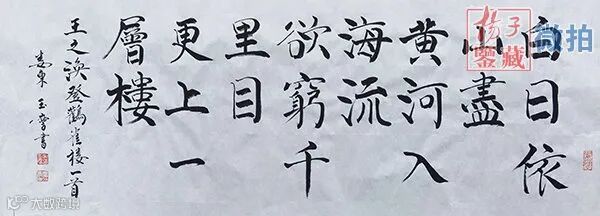 白日依
山盡
黄河入
海流
欲窮千
里目
更上一
層樓
王之渙登鸛雀樓一首
玉 書
扬子
鉴藏
微拍
大数跨境